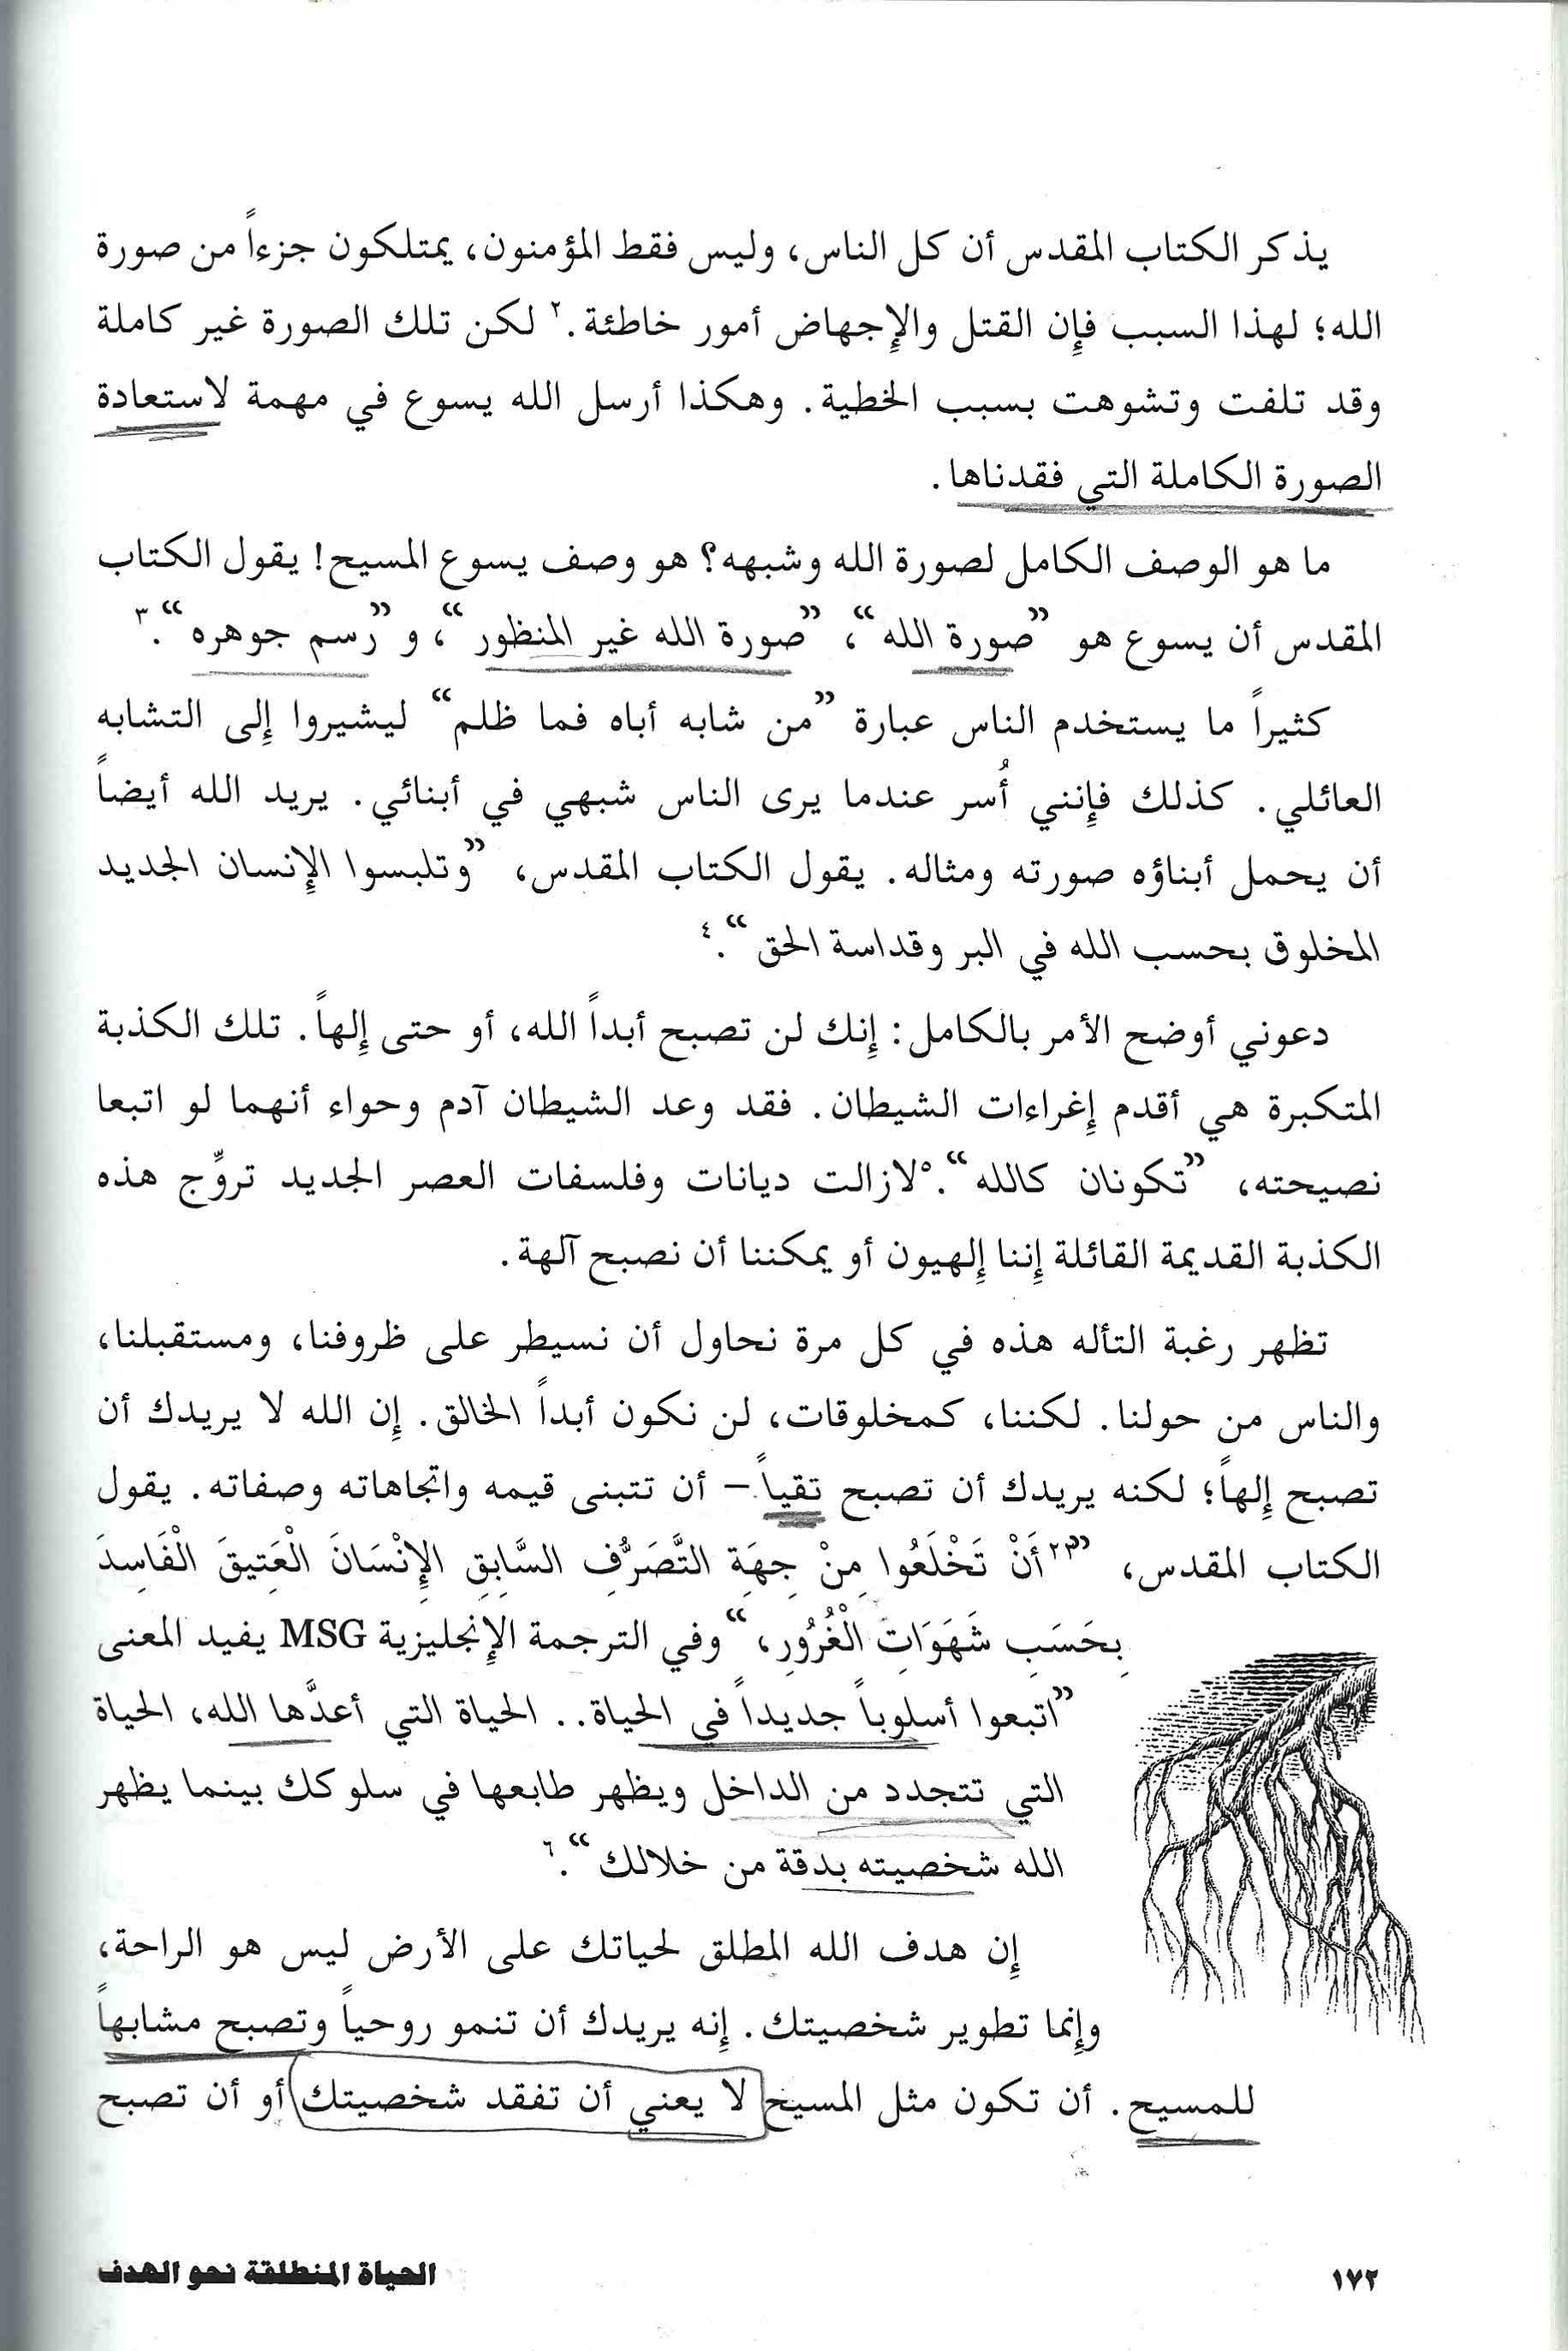 يذكر الكتاب المقدس أن كل الناس، وليس فقط المؤمنون، يمتلكون جزءاً من صورة
الله؛ لهذا السبب فإن القتل والإجهاض أمور خاطئة.٢ لكن تلك الصورة غير كاملة
وقد تلفت وتشوهت بسبب الخطية. وهكذا أرسل الله يسوع في مهمة لاستعادة
الصورة الكاملة التي فقدناها.
ما هو الوصف الكامل لصورة الله وشبهه؟ هو وصف يسوع المسيح! يقول الكتاب
المقدس أن يسوع هو ”صورة الله“، ”صورة الله غير المنظور“، و ”رسم جوهره“.٣
كثيراً ما يستخدم الناس عبارة ”من شابه أباه فما ظلم“ ليشيروا إلى التشابه
العائلي. كذلك فإنني أُسر عندما يرى الناس شبهي في أبنائي. يريد الله أيضاً
أن يحمل أبناؤه صورته ومثاله. يقول الكتاب المقدس، ”وتلبسوا الإنسان الجديد
المخلوق بحسب الله في البر وقداسة الحق“.٤
دعوني أوضح الأمر بالكامل: إنك لن تصبح أبداً الله، أو حتى إلهاً. تلك الكذبة
المتكبرة هي أقدم إغراءات الشيطان. فقد وعد الشيطان آدم وحواء أنهما لو اتبعا
نصيحته، ”تكونان كالله“.٥ لازالت ديانات وفلسفات العصر الجديد تروِّج هذه
الكذبة القديمة القائلة إننا إلهيون أو يمكننا أن نصبح آلهة.
تظهر رغبة التأله هذه في كل مرة نحاول أن نسيطر على ظروفنا، ومستقبلنا،
والناس من حولنا. لكننا، كمخلوقات، لن نكون أبداً الخالق. إن الله لا يريدك أن
تصبح إلهاً؛ لكنه يريدك أن تصبح تقياً – أن تتبنى قيمه واتجاهاته وصفاته. يقول
الكتاب المقدس، ”٢٢أَنْ تَخْلَعُوا مِنْ جِهَةِ التَّصَرُّفِ السَّابِقِ الإِنْسَانَ الْعَتِيقَ الْفَاسِدَ
بِحَسَبِ شَهَوَاتِ الْغُرُورِ،“ وفي الترجمة الإنجليزية MSG يفيد المعنى
”اتبعوا أسلوباً جديداً في الحياة.. الحياة التي أعدَّها الله، الحياة
التي تتجدد من الداخل ويظهر طابعها في سلوكك بينما يظهر
الله شخصيته بدقة من خلالك“.٦
إن هدف الله المطلق لحياتك على الأرض ليس هو الراحة،
وإنما تطوير شخصيتك. إنه يريدك أن تنمو روحياً وتصبح مشابهاً
للمسيح. أن تكون مثل المسيح لا يعني أن تفقد شخصيتك أو أن تصبح
١٧٢ الحياة المنطلقة نحو الهدف